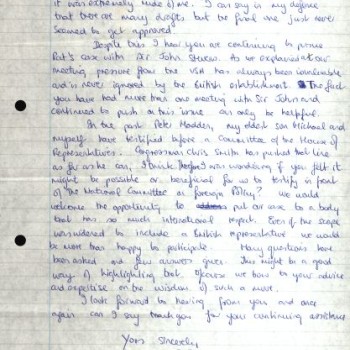 it was extremely rude of me. I can say in my defence
that there are many drafts but the final one just never
seemed to get approved.
Despite this I hear you are continuing to pursue
Pat's case with Sir John Stevens. As we explained at our
meeting pressure from the USA has always been invaluable
and is never ignored by the British establishment. The fact
you have had more than one meeting with Sir John and
continued to push on this issue can only be helpful.
In the past Peter Madden, my eldest son Michael and
myself have testified before a Committee of the House of
Representatives. Congressman Chris Smith has pushed
as far as he can, I think. I was wondering if you felt it
might be possible or beneficial for us to testify in front
of the National Committee on Foreign Policy? We would
welcome the opportunity to put our case to a body
that has so much international respect. Even if the scope
was widened to include a British representative we would
be more than happy to participate. Many questions have
been asked and few answers given. This might be a good
way of highlighting that. Of course we bow to your advice
and expertise on the wisdom of such a move.
I look forward to hearing from you and once
again can I say thank you for your continuing assistance
Yours Sincerely